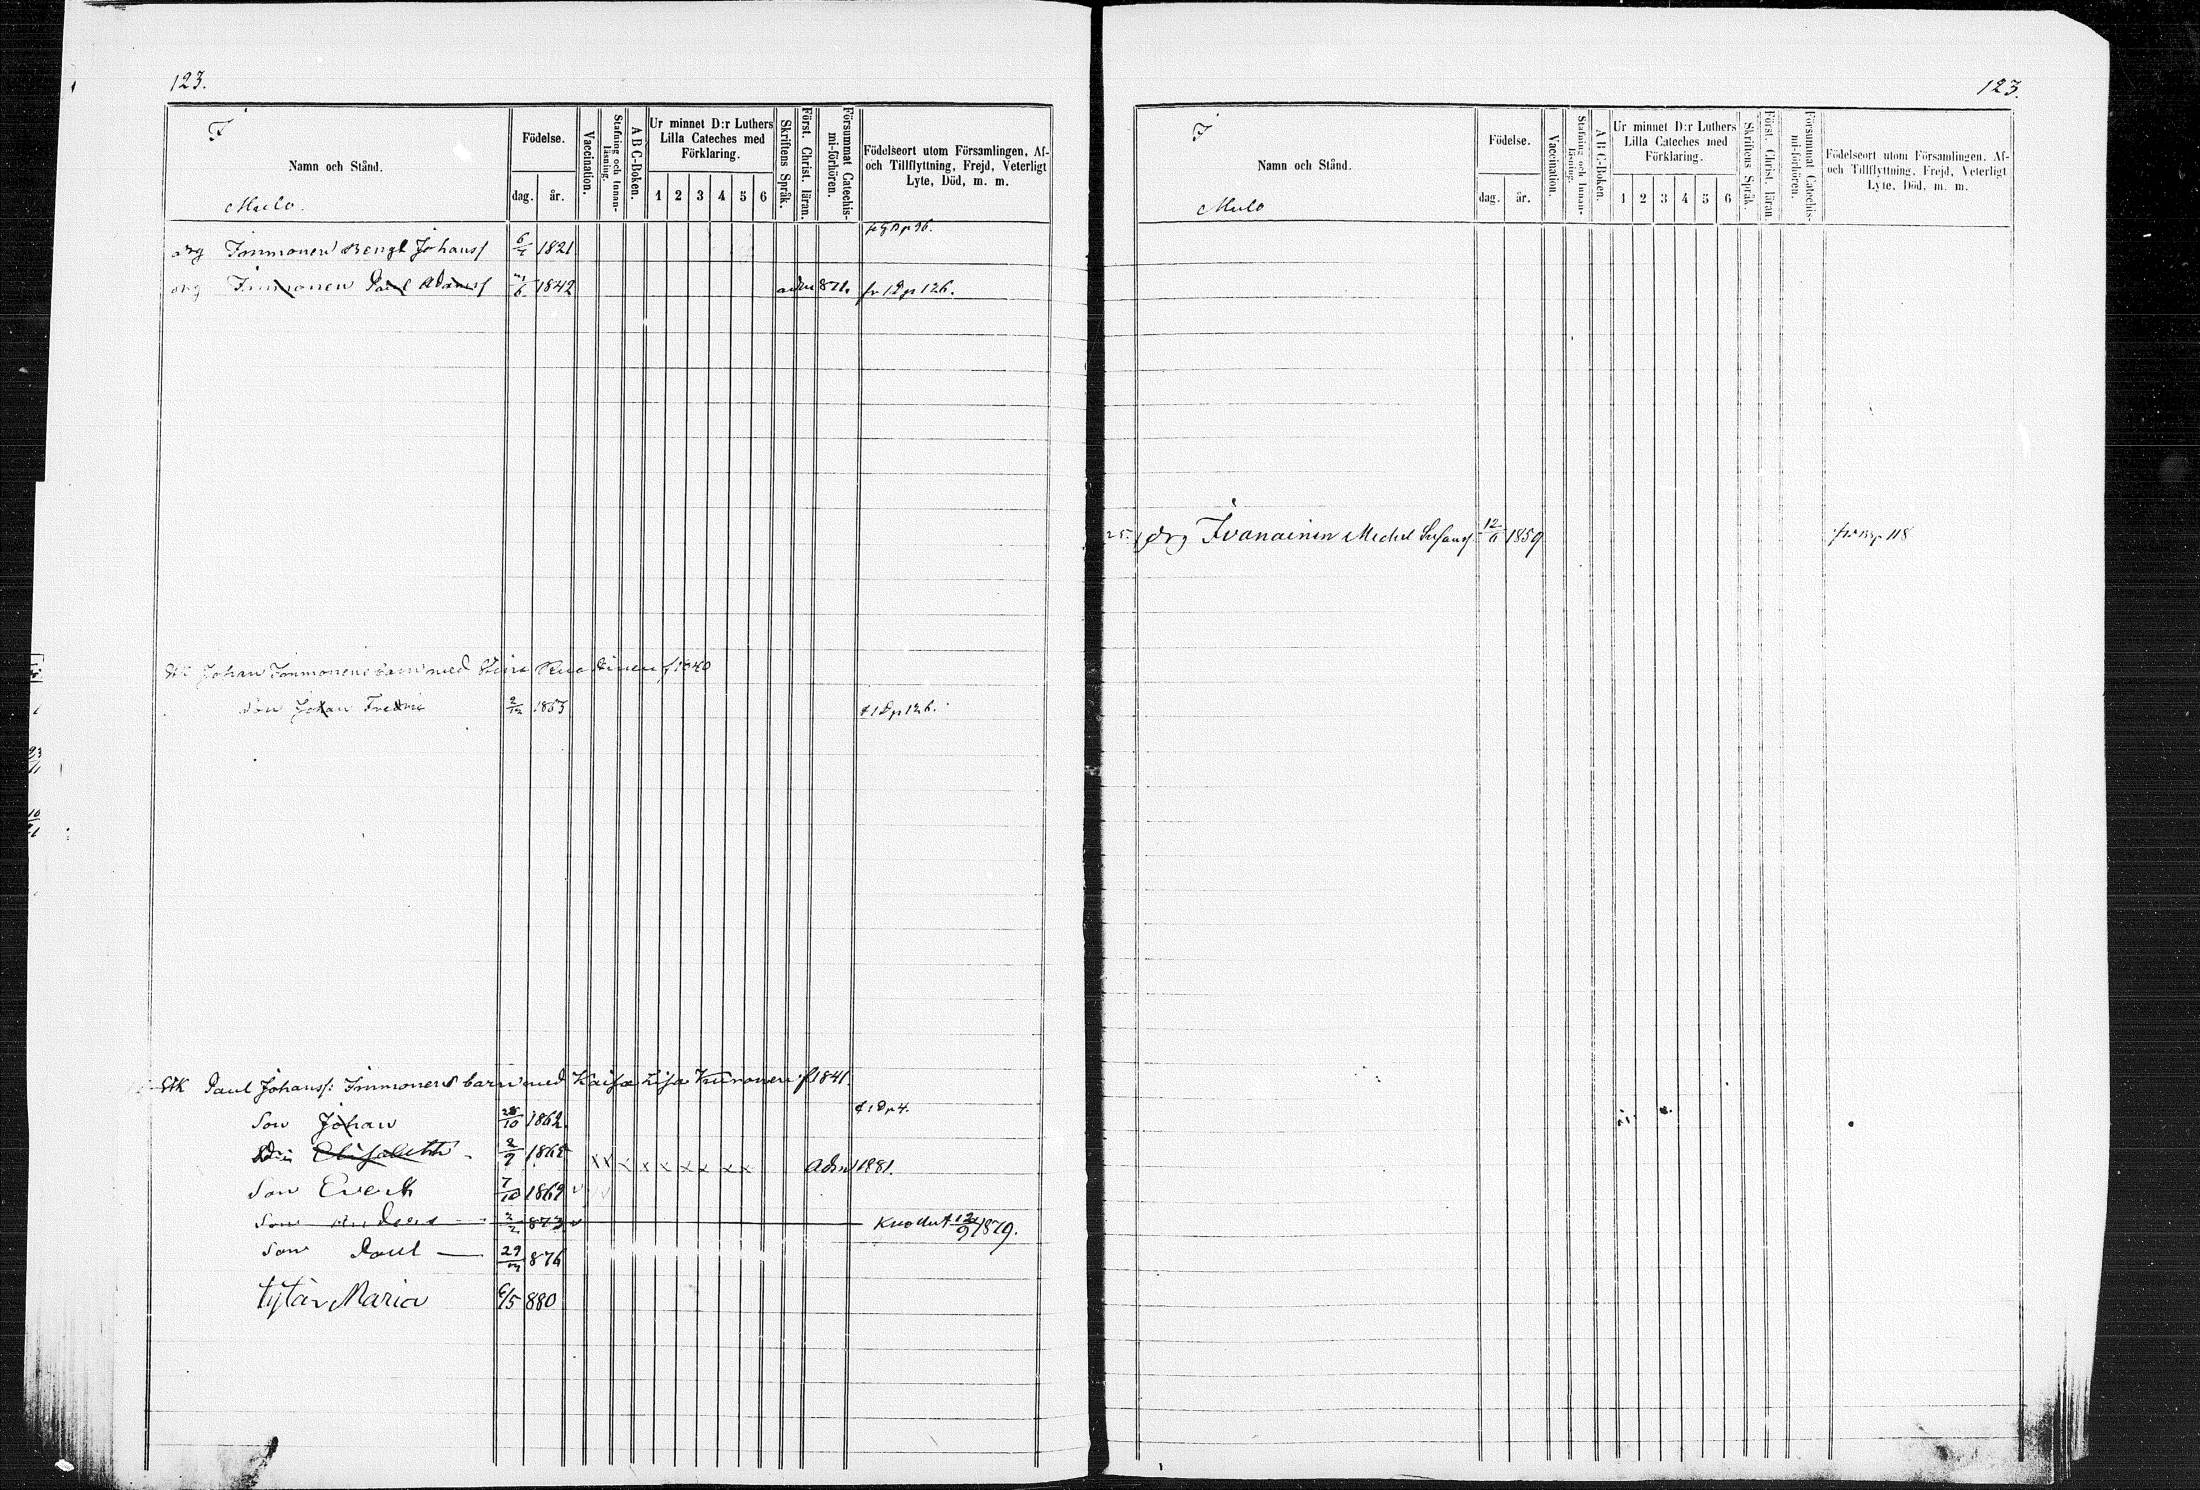 123.
I
Namn och Stånd.
Mulo.
Födelse.
dag. år.
Vaccination.
Stafning och Innan-läsning.
A B C-Boken.
Ur minnet D:r Luthers Lilla Cateches med Förklaring.
1 2 3 4 5 6
Skriftens Språk.
Först. Christ. läran.
Försummat Catechis-mi-förhören.
Födelseort utom Församlingen, Af- och Tillflyttning, Frejd, Veterligt Lyte, Död, m. m.
Immonen Bengt Johanss 1821
Immonen Paul Adamss 1842 adm 871. fr 1 D p 126.
Johan Immonens barn med Stina 1840
Son Johan Fredric 2/12 1863 f 1 D p 126.
Enk Paul Johanss: Immonens barn med Kaisa Lisa Kuronen f 1841
Son Johan 28/10 1862. f 1 D p 4.
Elisabeth 2/9 1865 x x x x x x x x x Adm 1881.
Son Evert 7/10 1869 v v
Son Anders 873 v Kuollut 12/9 1879.
Son Paul 29 876
tytär Maria 6/5 880
123.
I
Namn och Stånd.
Mulo
Födelse.
dag. år.
Vaccination.
Stafning och Innan-läsning.
A B C-Boken.
Ur minnet D:r Luthers Lilla Cateches med Förklaring.
1 2 3 4 5 6
Skriftens Språk.
Först. Christ. läran.
Försummat Catechis-mi-förhören.
Födelseort utom Församlingen, Af- och Tillflyttning, Frejd, Veterligt Lyte, Död, m. m.
25. drg Ivanainen Michel 12/11 1859 118